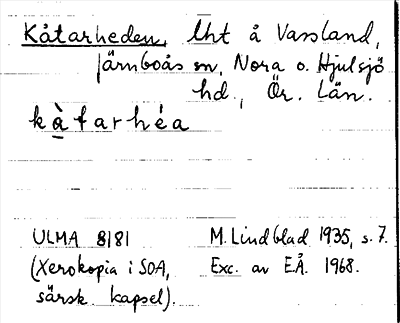 Kåtarheden, lht å Vassland,
järnboås sn, Nora o. Hjulsjö
hd., Ör. Län.
kàtarhéa
ULMA 8181 M. Lindblad 1935, s. 7.
(Xerokopia i SOA, Exc. av E.Å. 1968.
särsk. kapsel).